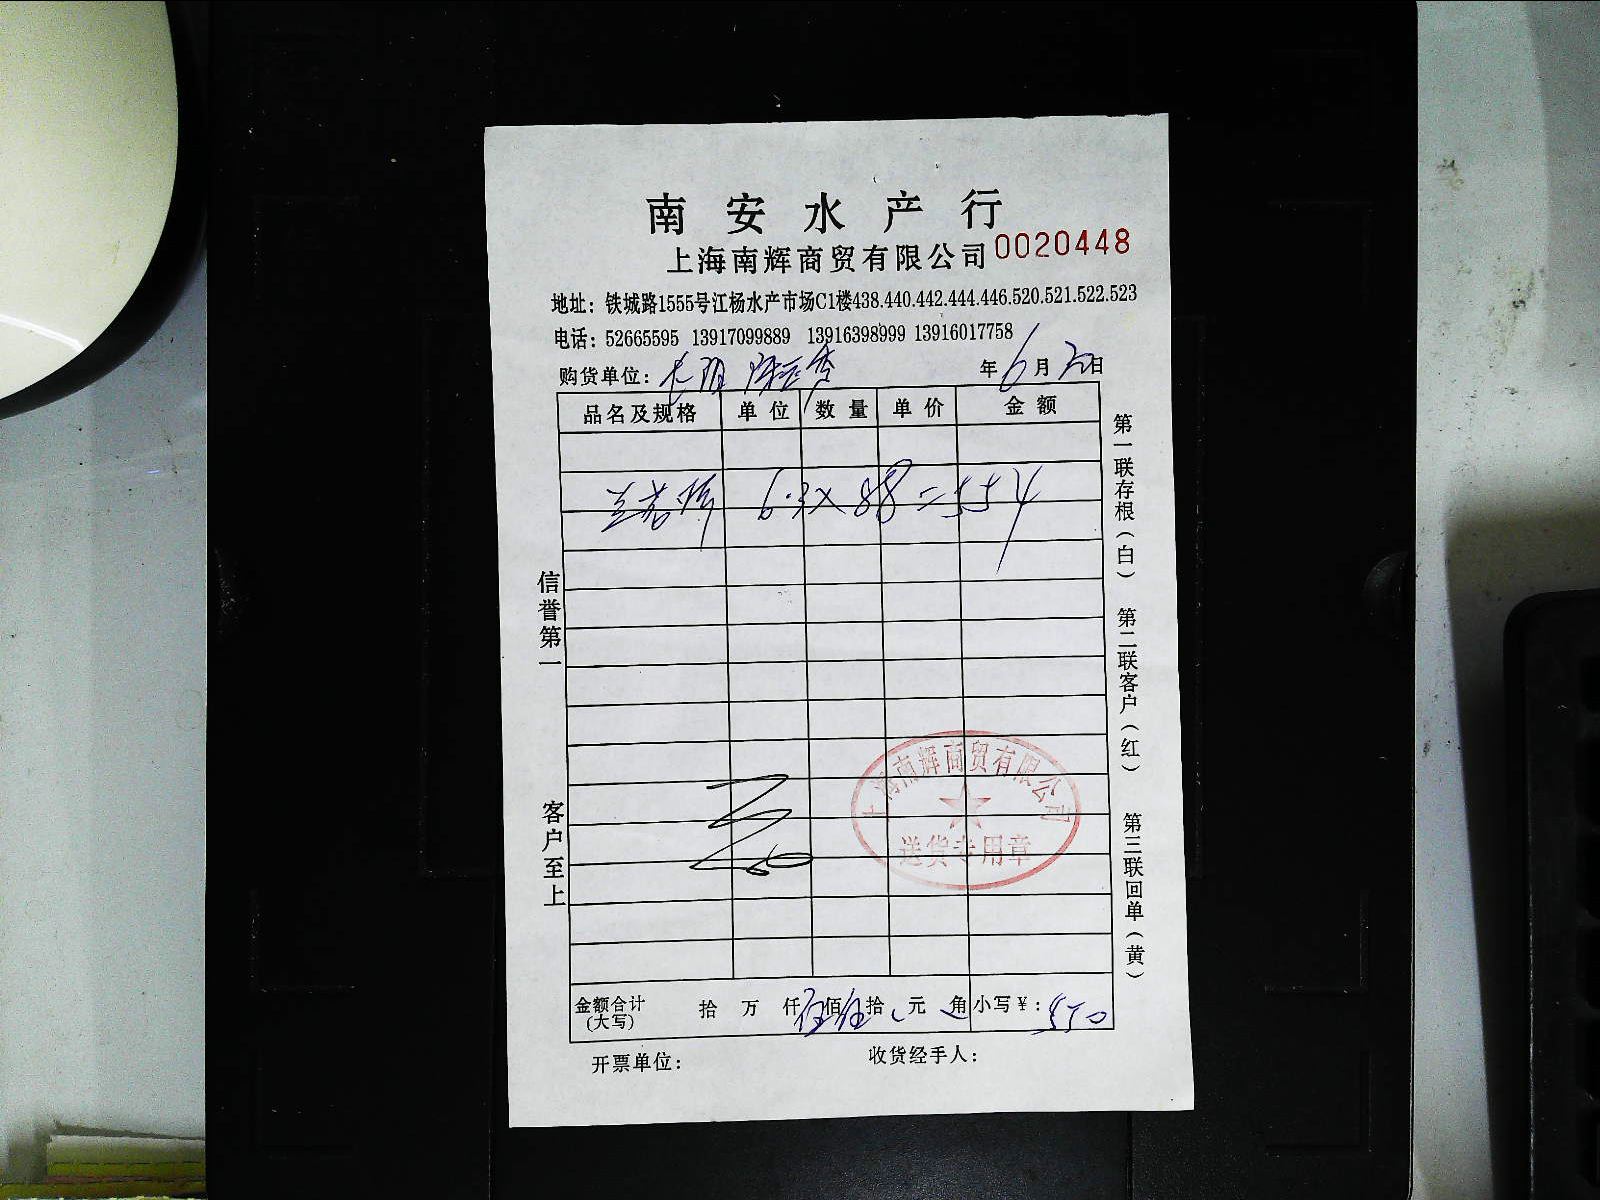 南安水产行
上海南辉商贸有限公司 0020448
地址：铁城路1555号江杨水产市场C1楼438.440.442.444.446.520.521.522.523
电话：52665595 13917099889 13916398999 13916017758
购货单位： 年6月 日
品名及规格 单位 数量 单价 金额
6.3×88=554
信誉第一
客户至上
第一联存根（白） 第二联客户（红） 第三联回单（黄）
上海南辉商贸有限公司
送货专用章
金额合计（大写） 拾 万 仟伍佰伍拾 元 角 小写¥：550
开票单位： 收货经手人：